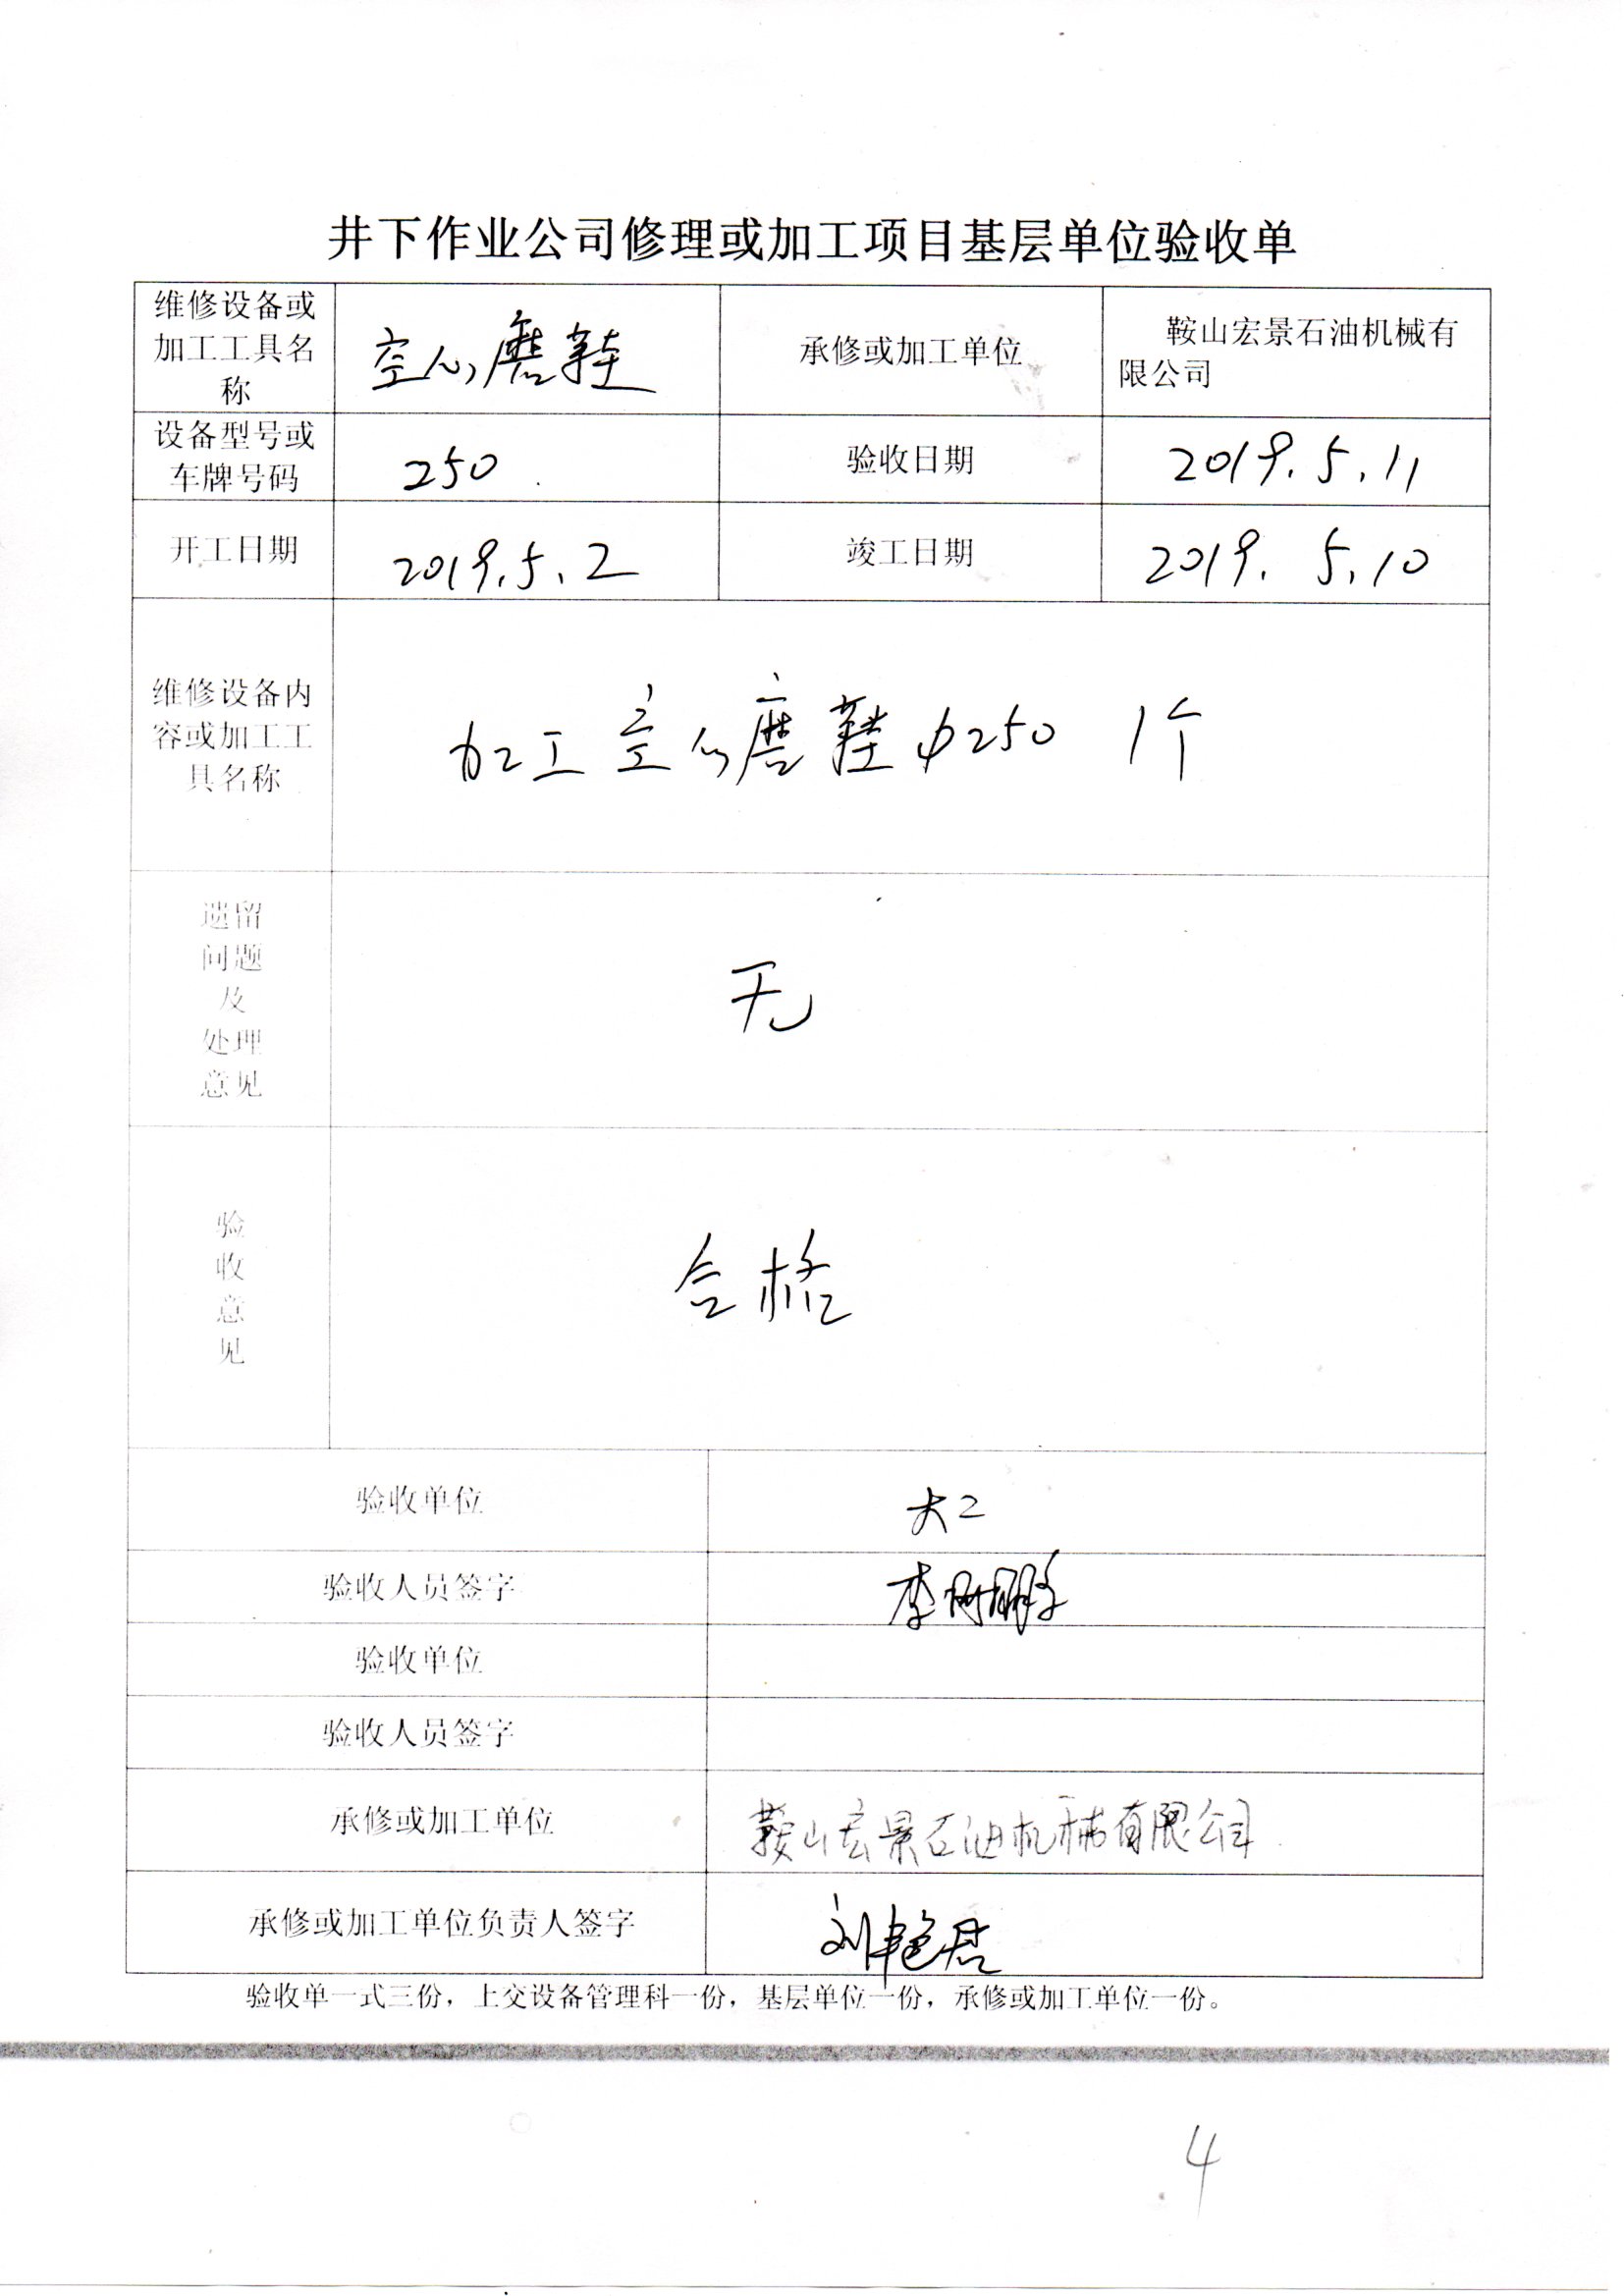 井下作业公司修理或加工项目基层单位验收单
维修设备或
加工工具名
称
空心磨鞋
承修或加工单位
鞍山宏景石油机械有
限公司
设备型号或
车牌号码
250
验收日期
2019.5.11
开工日期
2019.5.2
竣工日期
2019.5.10
维修设备内
容或加工工
具名称
加工空心磨鞋φ250 1个
遗留
问题
及
处理
意见
无
验
收
意
见
合格
验收单位
大二
验收人员签字
李树鹏
验收单位
验收人员签字
承修或加工单位
鞍山宏景石油机械有限公司
承修或加工单位负责人签字
刘艳君
验收单一式三份，上交设备管理科一份，基层单位一份，承修或加工单位一份。
4